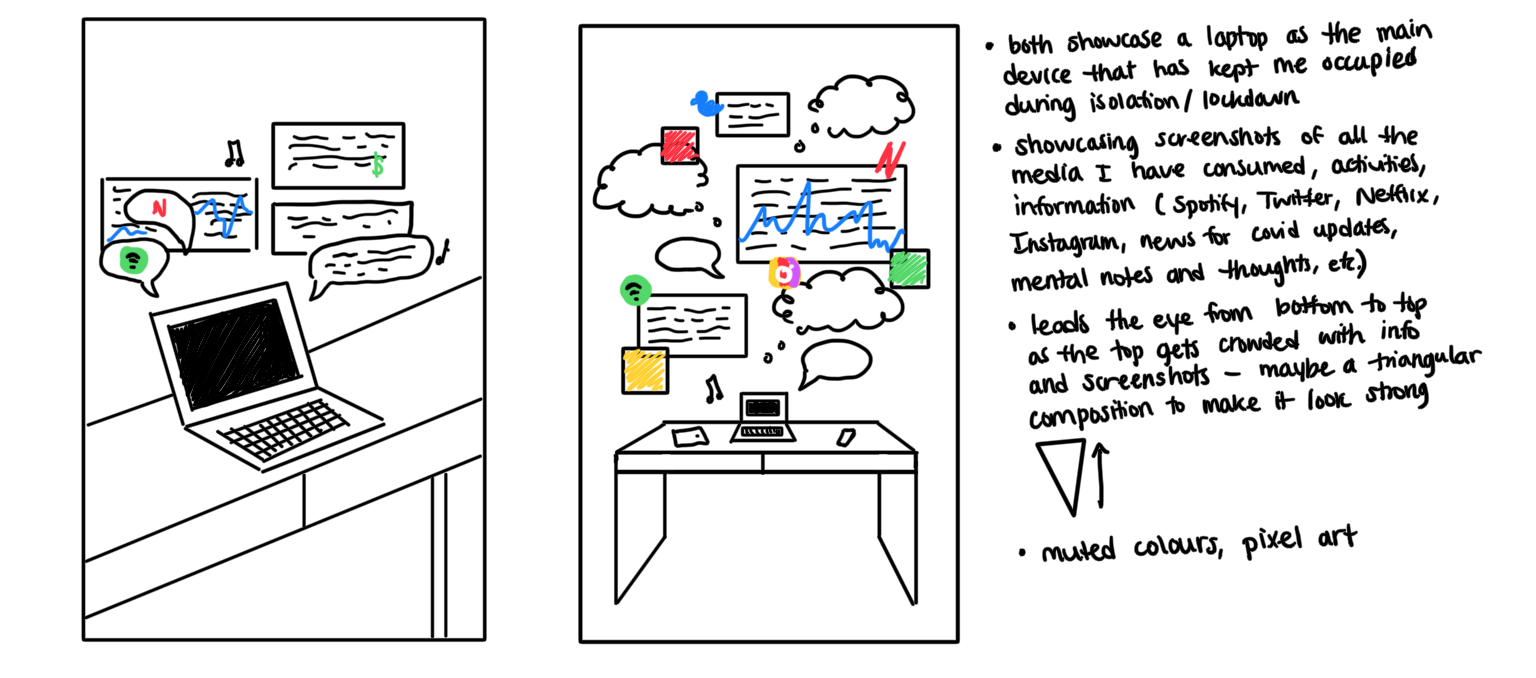 $
N
N
• both showcase a laptop as the main
device that has kept me occupied
during isolation/ lockdown
• showcasing screenshots of all the
media I have consumed, activities,
information ( Spotify, Twitter, Netflix,
Instagram, news for covid updates,
mental notes and thoughts, etc.)
• leads the eye from bottom to top
as the top gets crowded with info
and screenshots – maybe a triangular
composition to make it look strong
• muted colours, pixel art